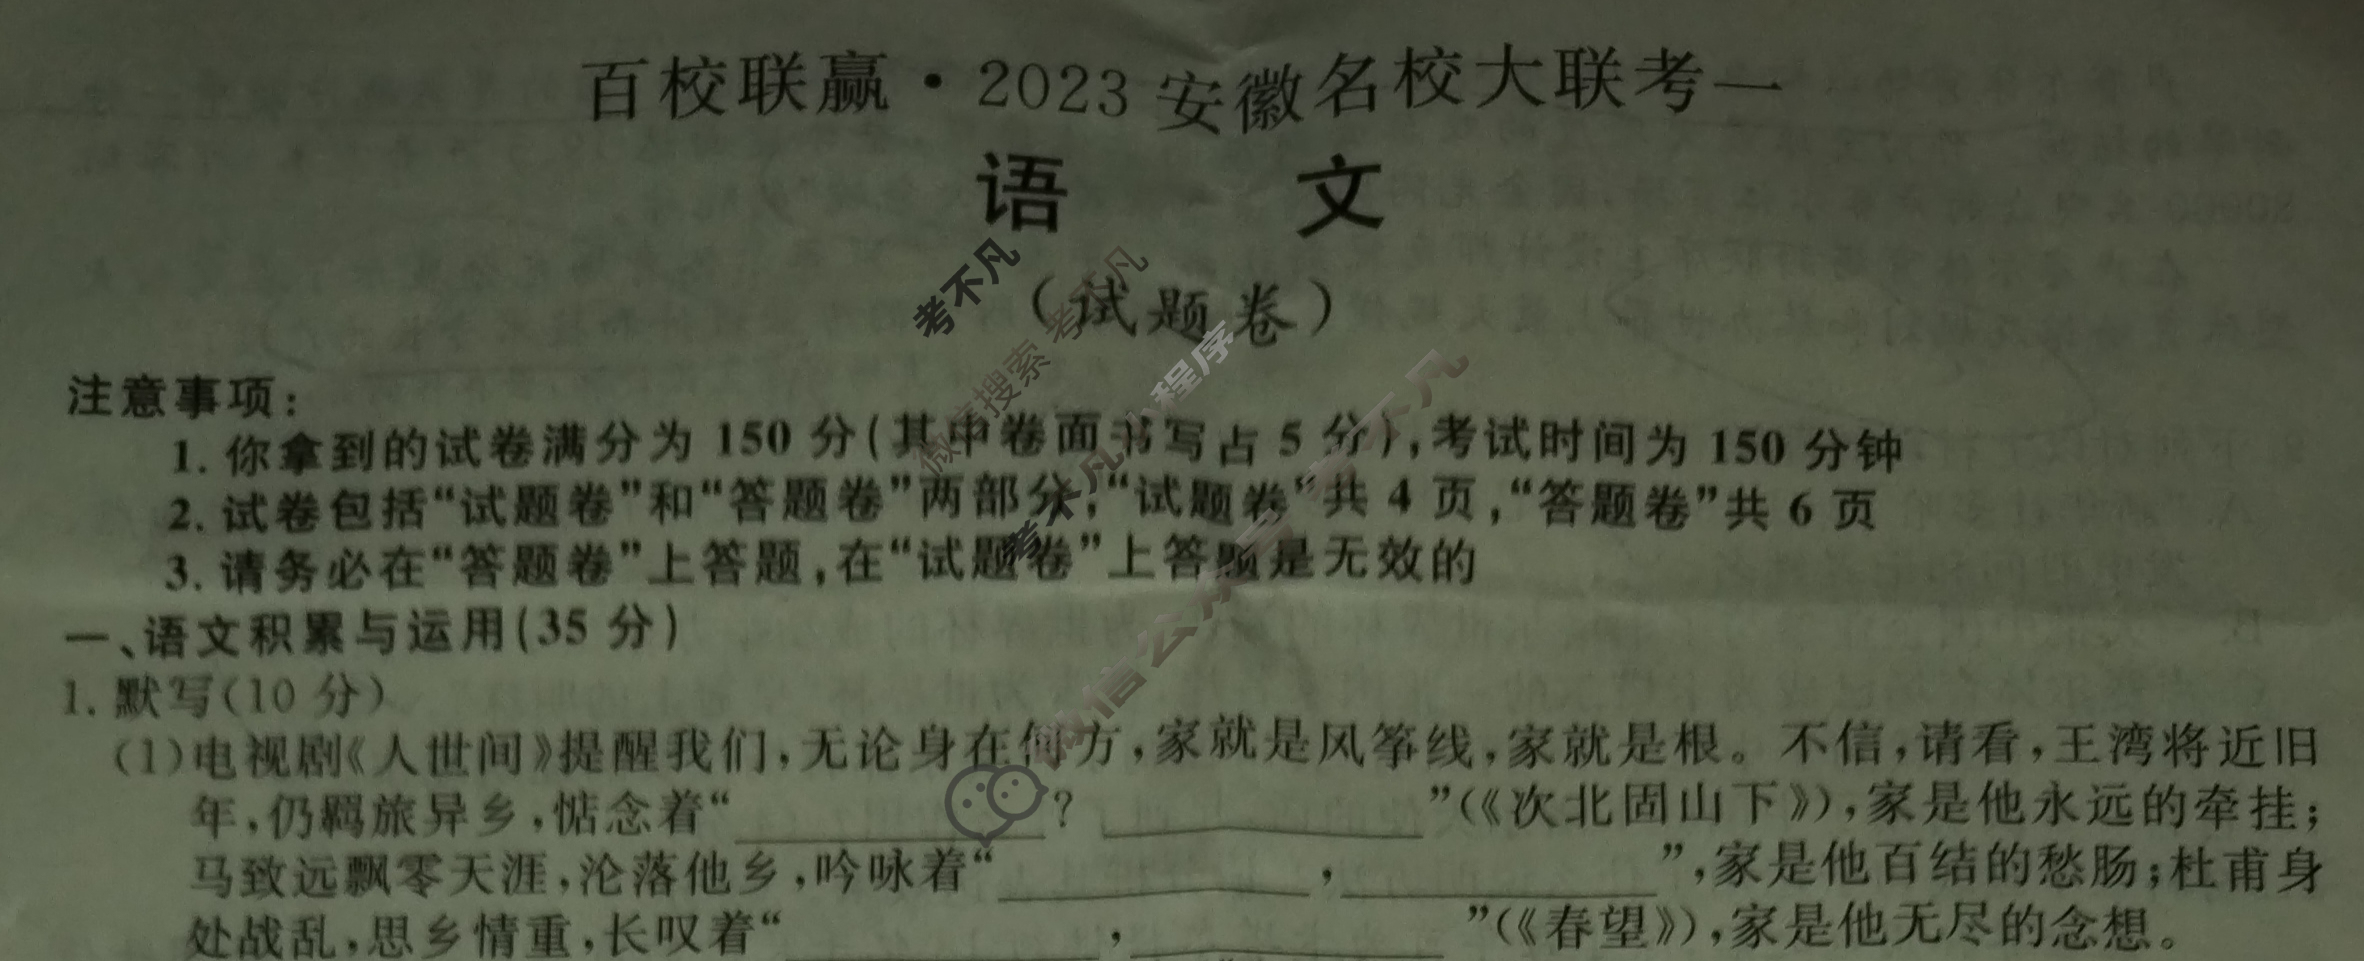 百校联赢·2023安徽名校大联考一
语 文
(试题卷)
注意事项:
1. 你拿到的试卷满分为 150 分(其中卷面书写占 5 分),考试时间为 150 分钟
2. 试卷包括“试题卷”和“答题卷”两部分,“试题卷”共 4 页,“答题卷”共 6 页
3. 请务必在“答题卷”上答题,在“试题卷”上答题是无效的
一、语文积累与运用(35 分)
1. 默写(10 分)
(1)电视剧《人世间》提醒我们,无论身在何方,家就是风筝线,家就是根。不信,请看,王湾将近旧
年,仍羁旅异乡,惦念着“____________? ____________”(《次北固山下》),家是他永远的牵挂;
马致远飘零天涯,沦落他乡,吟咏着“____________,____________”,家是他百结的愁肠;杜甫身
处战乱,思乡情重,长叹着“____________,____________”(《春望》),家是他无尽的念想。
考不凡
微信搜索 考不凡
考不凡小程序
微信公众号 考不凡